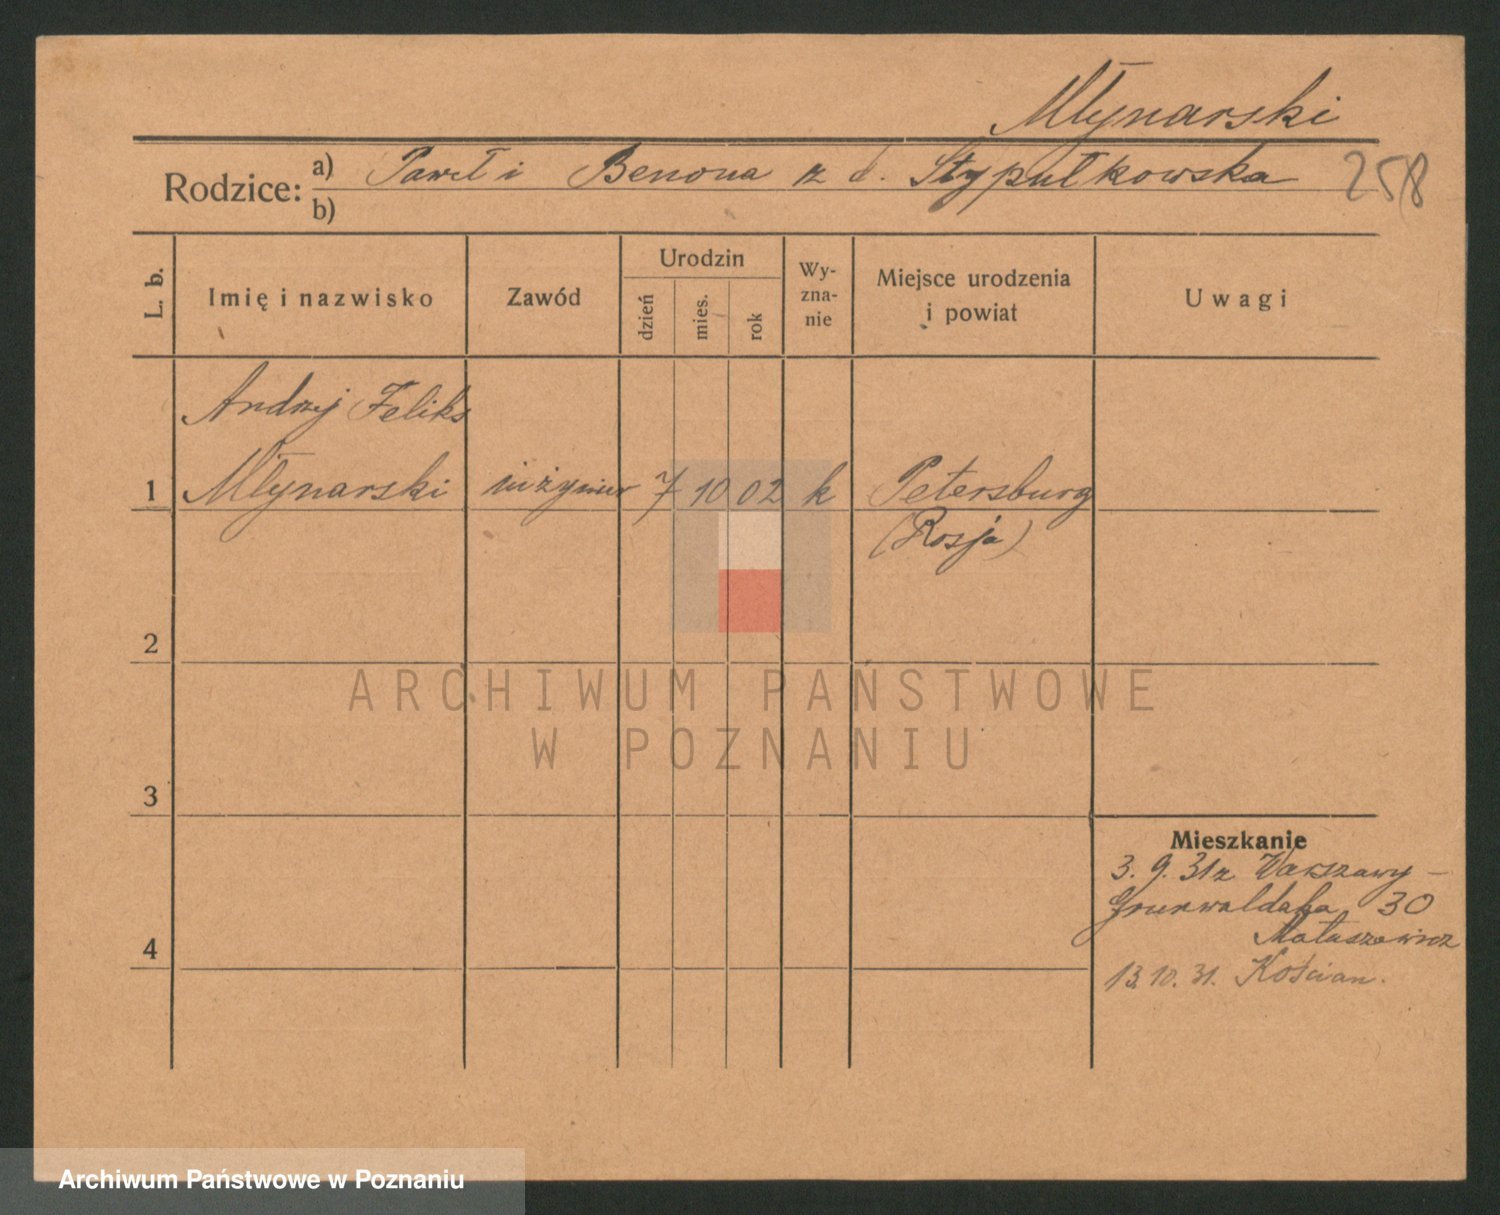 Młynarski
Rodzice: a) Paweł i Benona z d. Stypułkowska 258
b)
L. b. Imię i nazwisko Zawód Urodzin Wy-zna-nie Miejsce urodzenia i powiat Uwagi
dzień mies. rok
Andrzej Feliks
1 Młynarski inżynier 7 10 02 k Petersburg
(Rosja)
2
ARCHIWUM PAŃSTWOWE
W POZNANIU
3
Mieszkanie
3. 9. 31 z Warszawy –
Grunwaldzka 30
Matuszewicz
4
13. 10. 31. Kościan.
Archiwum Państwowe w Poznaniu